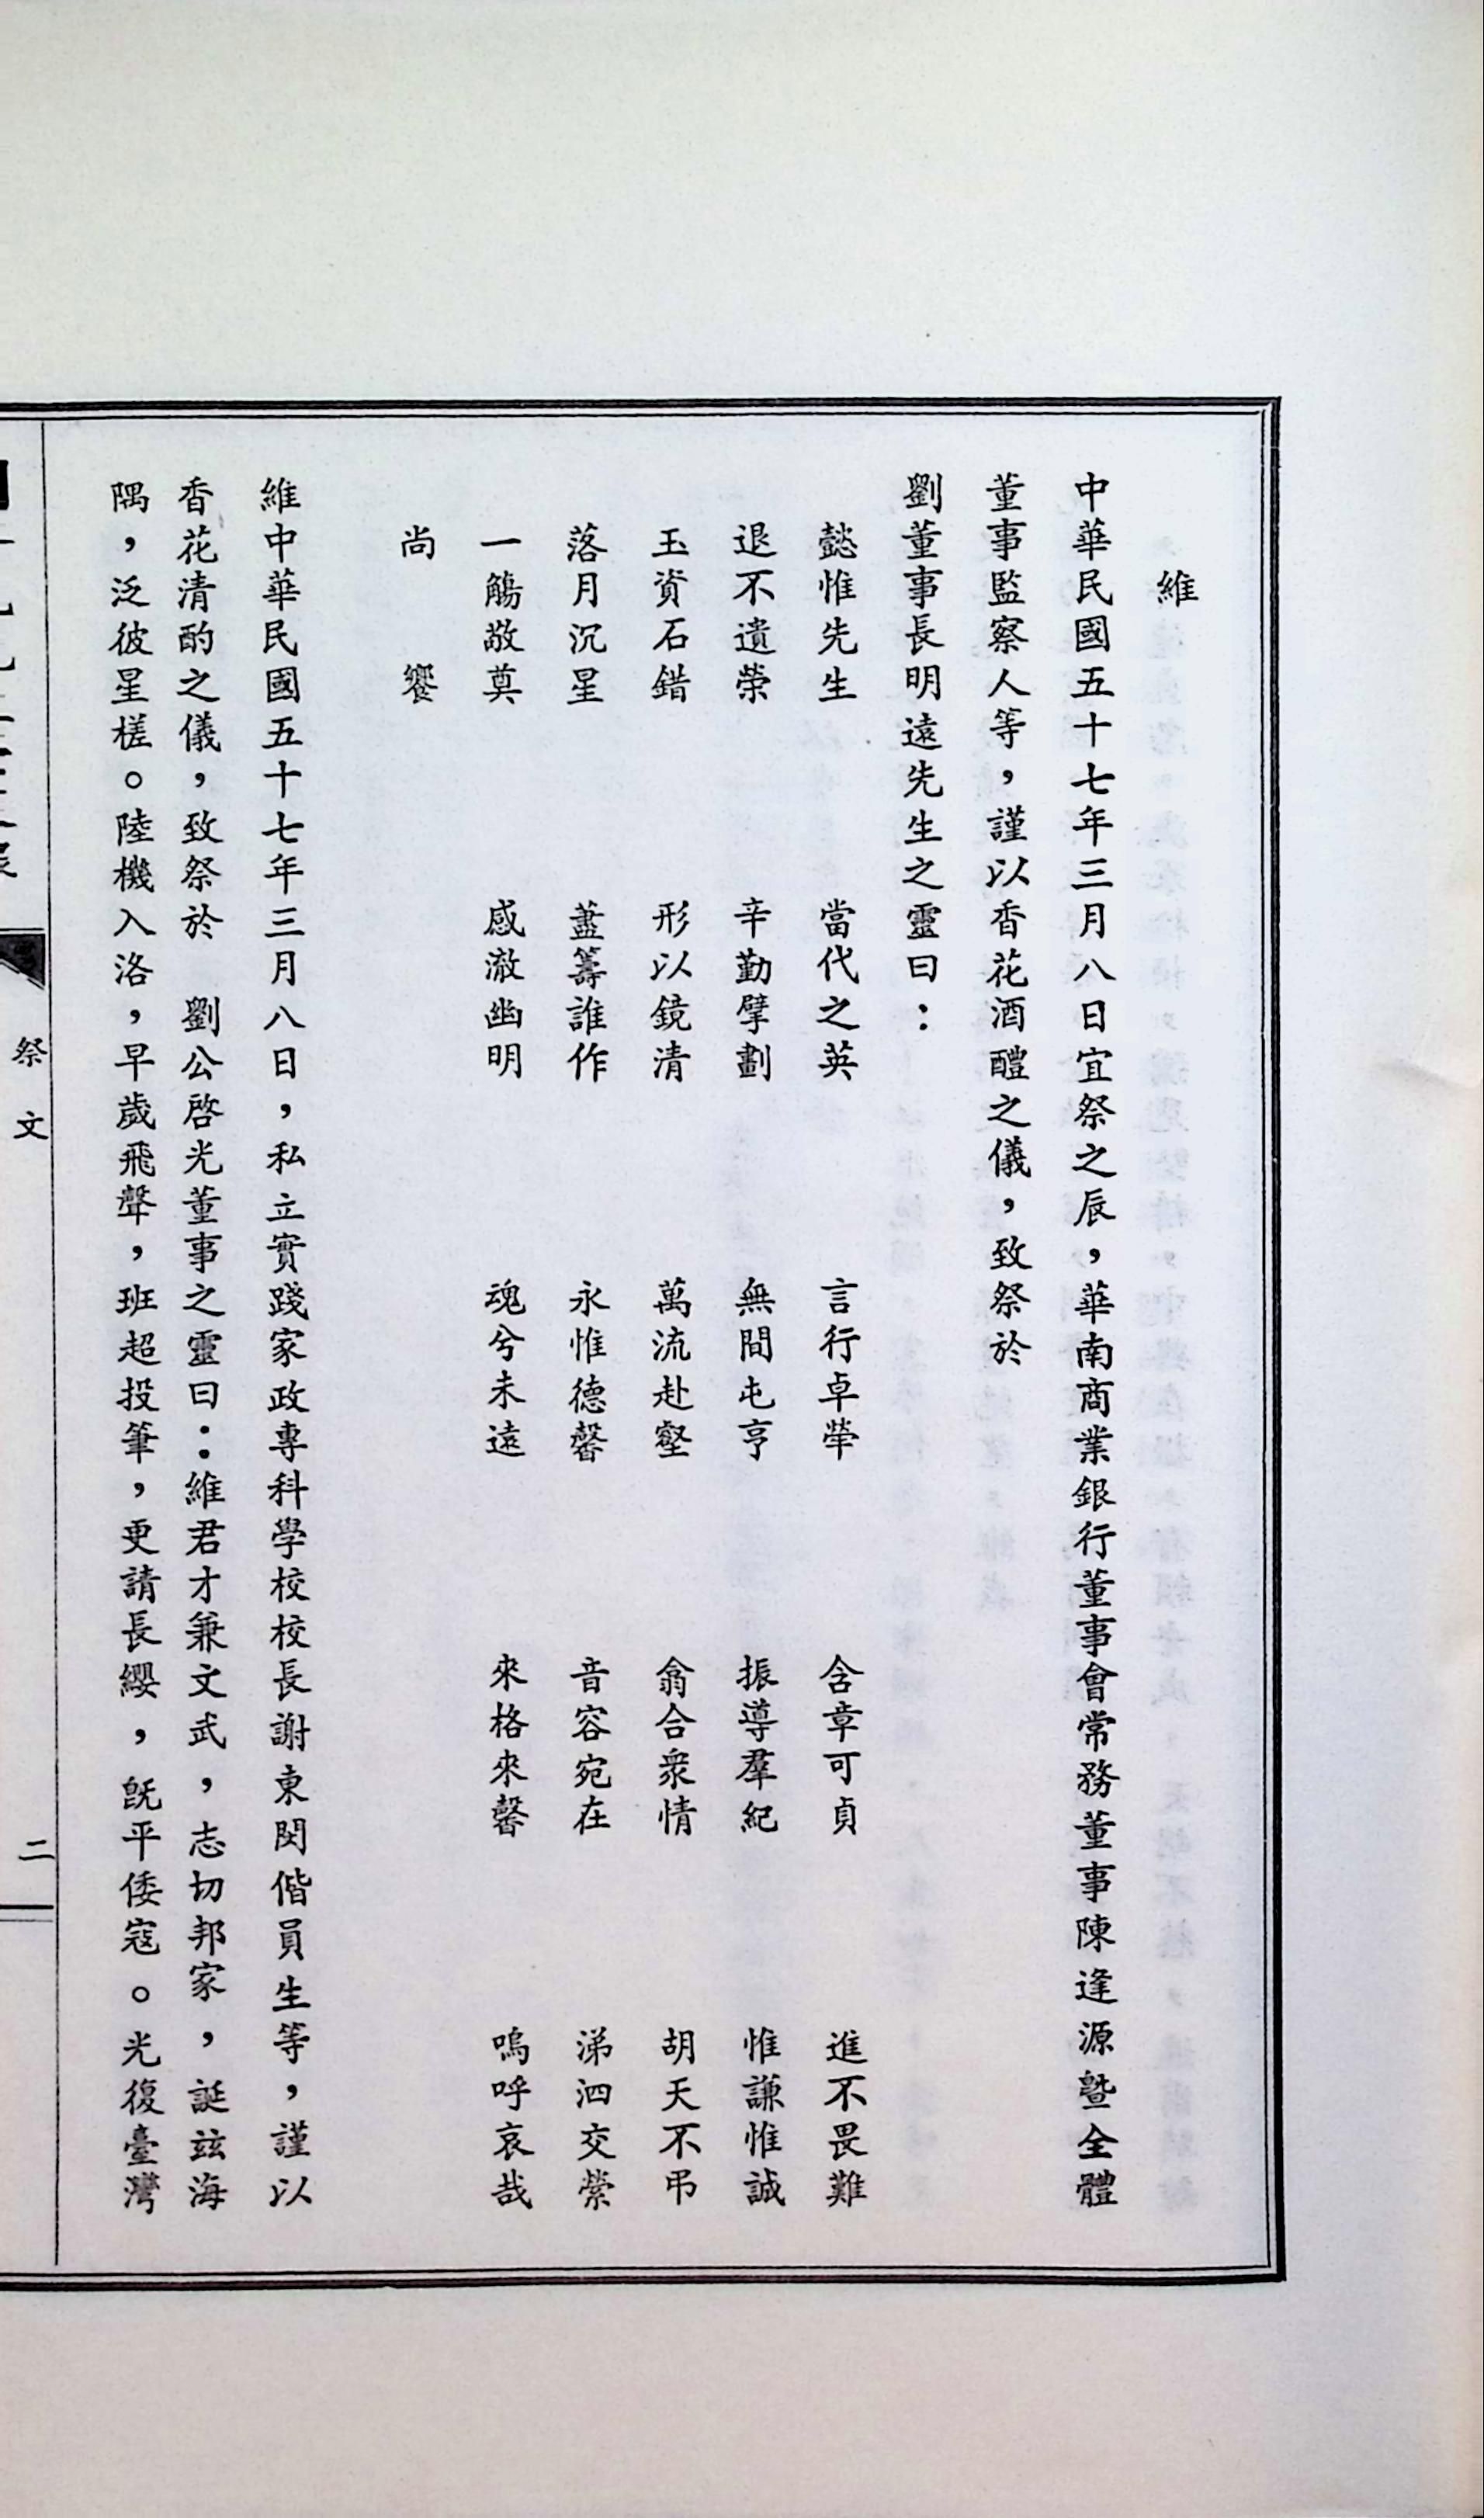 維
中華民國五十七年三月八日宜祭之辰，華南商業銀行董事會常務董事陳逢源暨全體
董事監察人等，謹以香花酒醴之儀，致祭於
劉董事長明遠先生之靈曰：
懿惟先生　當代之英　言行卓犖　含章可貞　進不畏難
退不遺榮　辛勤擘劃　無間屯亨　振導羣紀　惟謙惟誠
玉資石錯　形以鏡清　萬流赴壑　翕合衆情　胡天不弔
落月沉星　藎籌誰作　永惟德馨　音容宛在　涕泗交縈
一觴敬奠　感澈幽明　魂兮未遠　來格來馨　嗚呼哀哉
尚　饗
維中華民國五十七年三月八日，私立實踐家政專科學校校長謝東閔偕員生等，謹以
香花清酌之儀，致祭於　劉公啓光董事之靈曰：維君才兼文武，志切邦家，誕茲海
隅，泛彼星槎。陸機入洛，早歲飛聲，班超投筆，更請長纓，旣平倭寇。光復臺灣
祭文
二